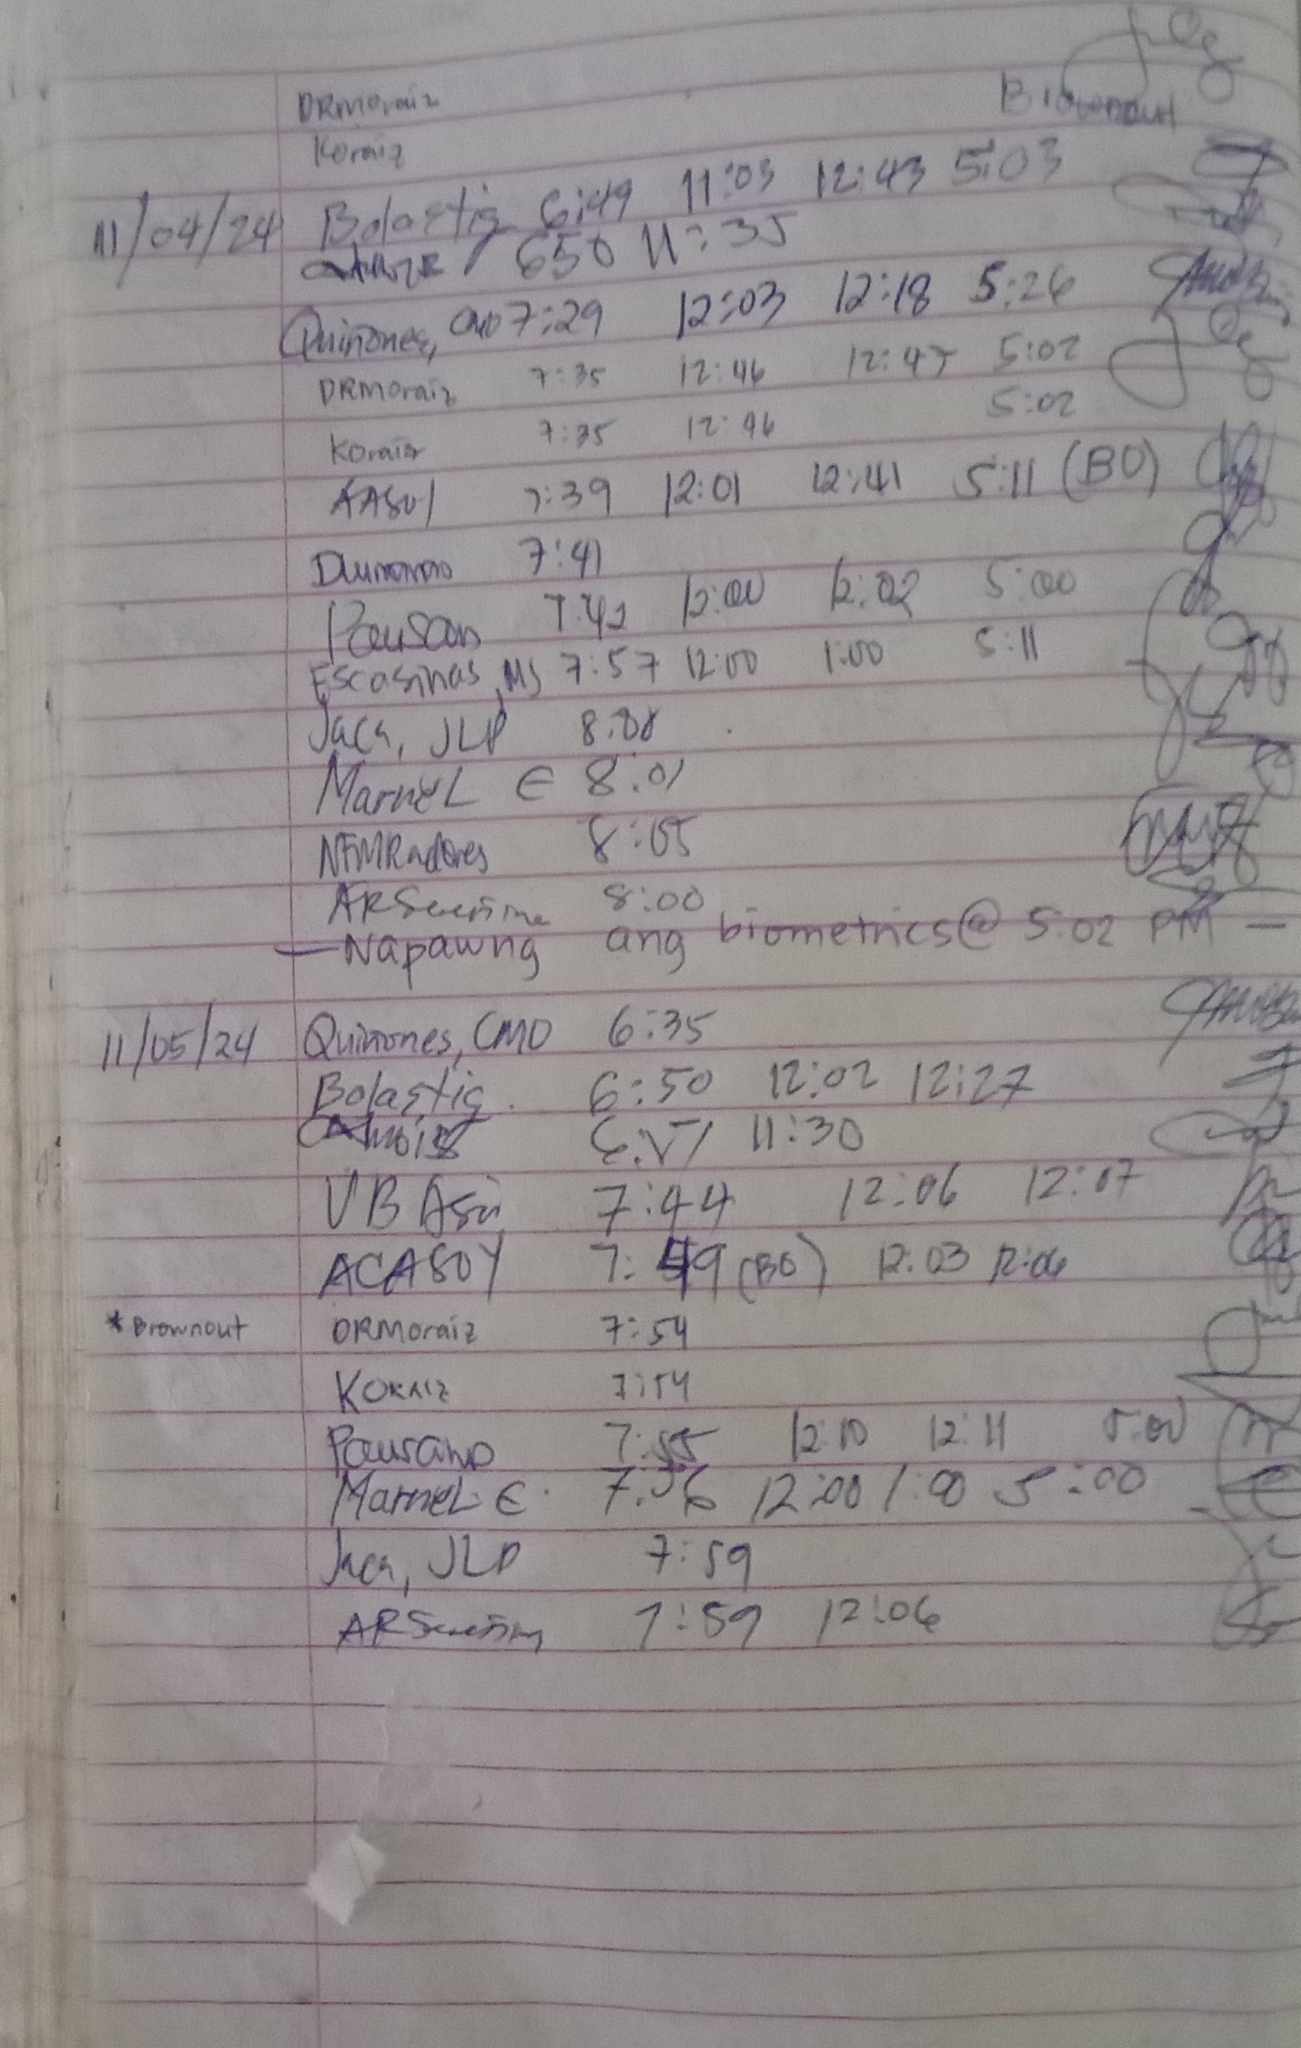 DRMoraiz Brownout
Koraiz
11/04/24 Bolastig 6:49 11:03 12:43 5:03
650 11:35
Quiñones, CMO 7:29 12:03 12:18 5:26
DRMoraiz 7:35 12:46 12:47 5:02
Koraiz 7:35 12:46 5:02
7:39 12:01 12:41 5:11 (BO)
7:41
Pausan 7:42 12:00 12:02 5:00
Escasinas, MJ 7:57 12:00 1:00 5:11
Jaca, JLP 8:00
Marnel E 8:01
NFMRadores 8:05
8:00
— Napawng ang biometrics @ 5:02 PM —
11/05/24 Quiñones, CMO 6:35
Bolastig. 6:50 12:02 12:27
6:51 11:30
VB Asu 7:44 12:06 12:07
ACASOY 7:49 (BO) 12:03 12:06
* Brownout DRMoraiz 7:54
KORAIZ 7:54
Pausano 7:55 12:10 12:11 5:00
Marnel E. 7:56 12:00 1:00 5:00
Jaca, JLP 7:59
7:59 12:06